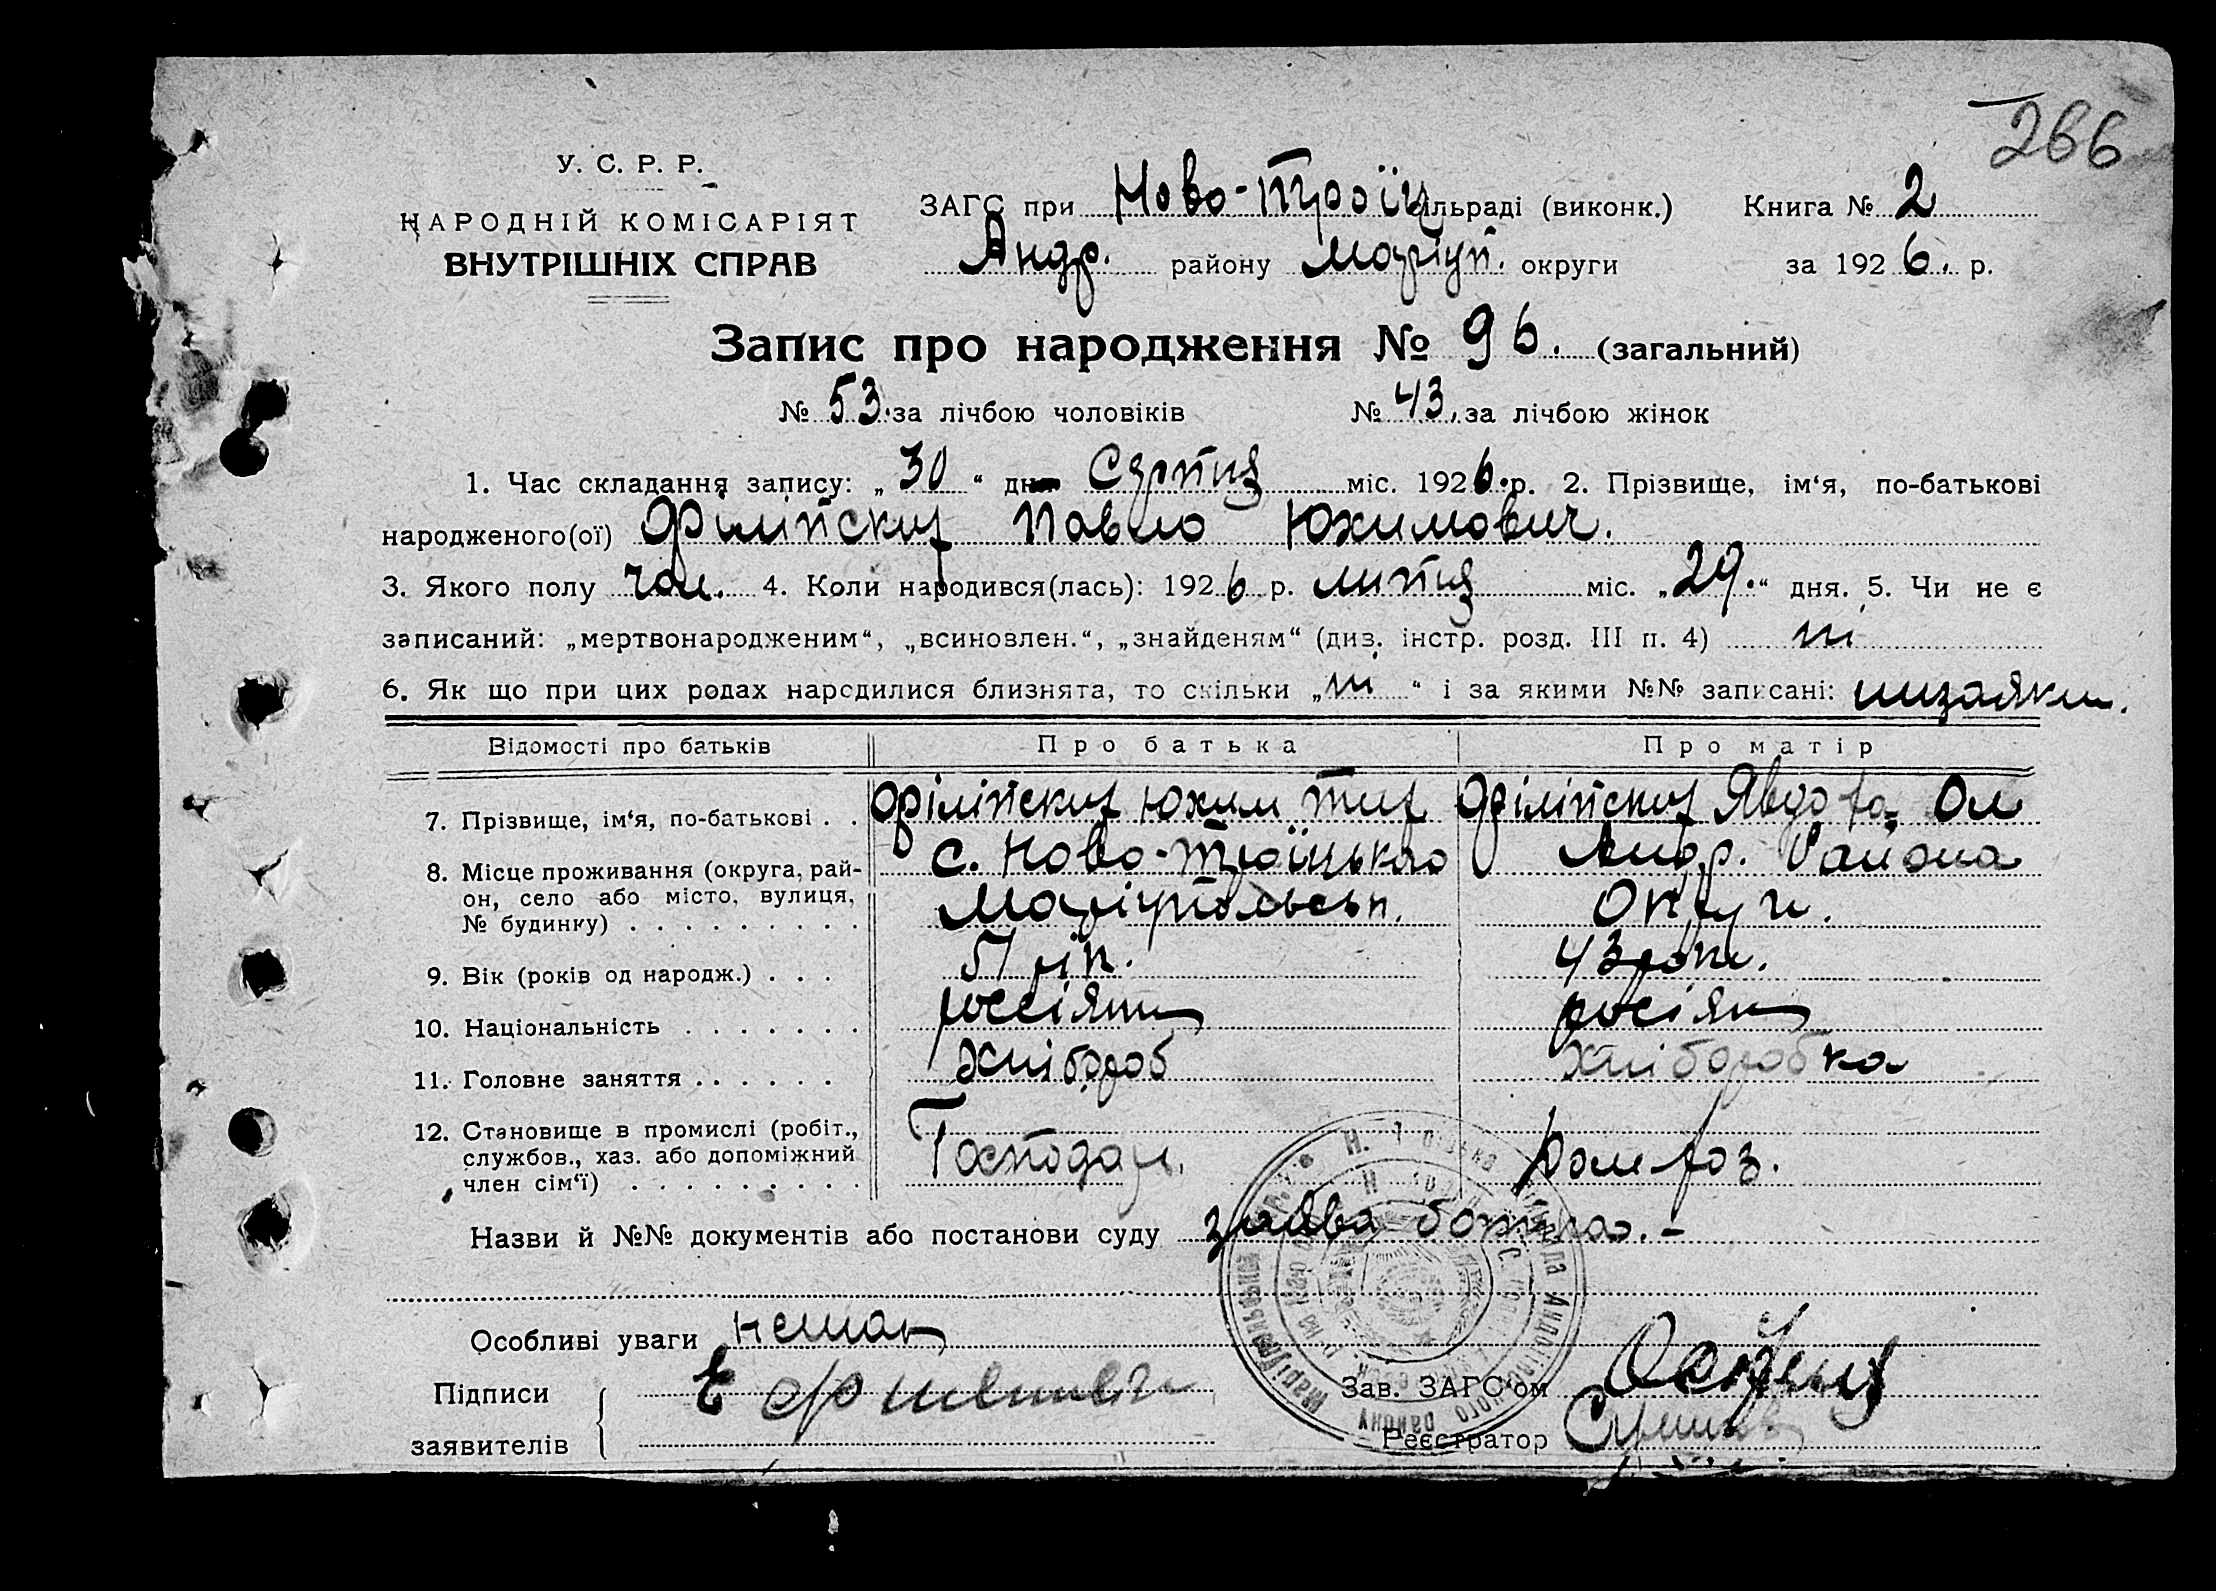 266
У. С. Р. Р.
НАРОДНІЙ КОМІСАРІЯТ
ВНУТРІШНІХ СПРАВ
ЗАГС при Ново-Троїц сільраді (виконк.) Книга № 2
Андр. району Маріуп. округи за 1926. р.
Запис про народження № 96. (загальний)
№ 53. за лічбою чоловіків № 43. за лічбою жінок
1. Час складання запису: „30“ дня Серпня міс. 1926 р. 2. Прізвище, ім‘я, по-батькові
народженого(ої) Філіпский Павло Юхимович.
3. Якого полу чол. 4. Коли народився(лась): 1926 р. липня міс. „29.“ дня. 5. Чи не є
записаний: „мертвонародженим“, „всиновлен.“, „знайденям“ (див. інстр. розд. III п. 4) ні
6. Як що при цих родах народилися близнята, то скільки „ні“ і за якими №№ записані: низаяки.
Відомості про батьків Про батька Про матір
7. Прізвище, ім‘я, по-батькові . . Філіпский Юхим Тих Філіпский Явдоха Ол
8. Місце проживання (округа, рай-он, село або місто, вулиця, № будинку) с. Ново-Троїцького Андр. Района
Маріупольськ. Округи.
9. Вік (років од народж.) . . . 51 рік. 43 роки.
10. Національність россіян росіян
11. Головне заняття хлібороб хліборобка
12. Становище в промислі (робіт., службов., хаз. або допоміжний член сім‘ї) Господар.
Назви й №№ документів або постанови суду заява батька.-
Особливі уваги немає
Підписи
заявителів
Зав. ЗАГС‘ом
Реєстратор